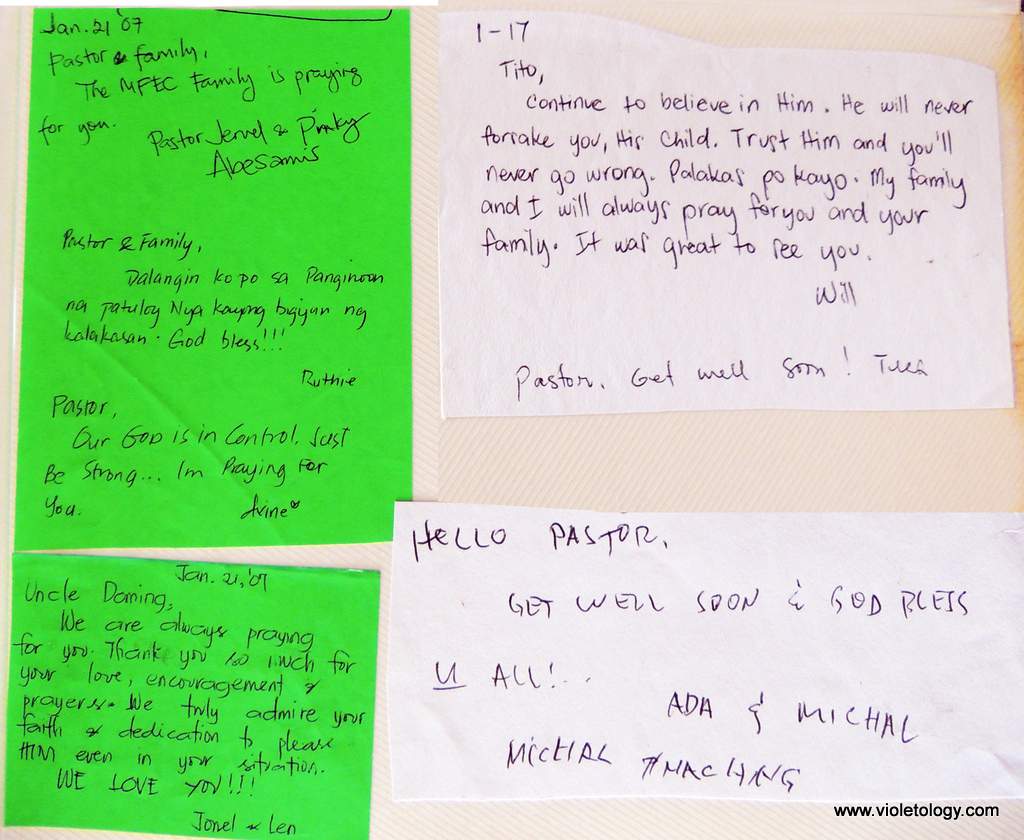 Jan. 21 '07
Pastor & family,
The MFEC Family is praying
for you.
Pastor Jervel & Pinky
Abesamis
Pastor & Family,
Dalangin ko po sa Panginoon
na patuloy Nya kayong bigyan ng
kalakasan. God bless!!!
Ruthie
Pastor,
Our GOD is in Control. Just
Be Strong... Im Praying For
You.
Jan. 21, '07
Uncle Doming,
We are always praying
for you. Thank you so much for
your love, encouragement &
prayers. We truly admire your
faith & dedication to please
HIM even in your situation.
WE LOVE YOU!!!
Jonel & Len
1-17
Tito,
Continue to believe in Him. He will never
forsake you, His child. Trust Him and you'll
never go wrong. Palakas po kayo. My family
and I will always pray for you and your
family. It was great to see you.
Will
Pastor. Get well soon!
HELLO PASTOR,
GET WELL SOON & GOD BLESS
U ALL!...
ADA & MICHAL
MICHAL
www.violetology.com